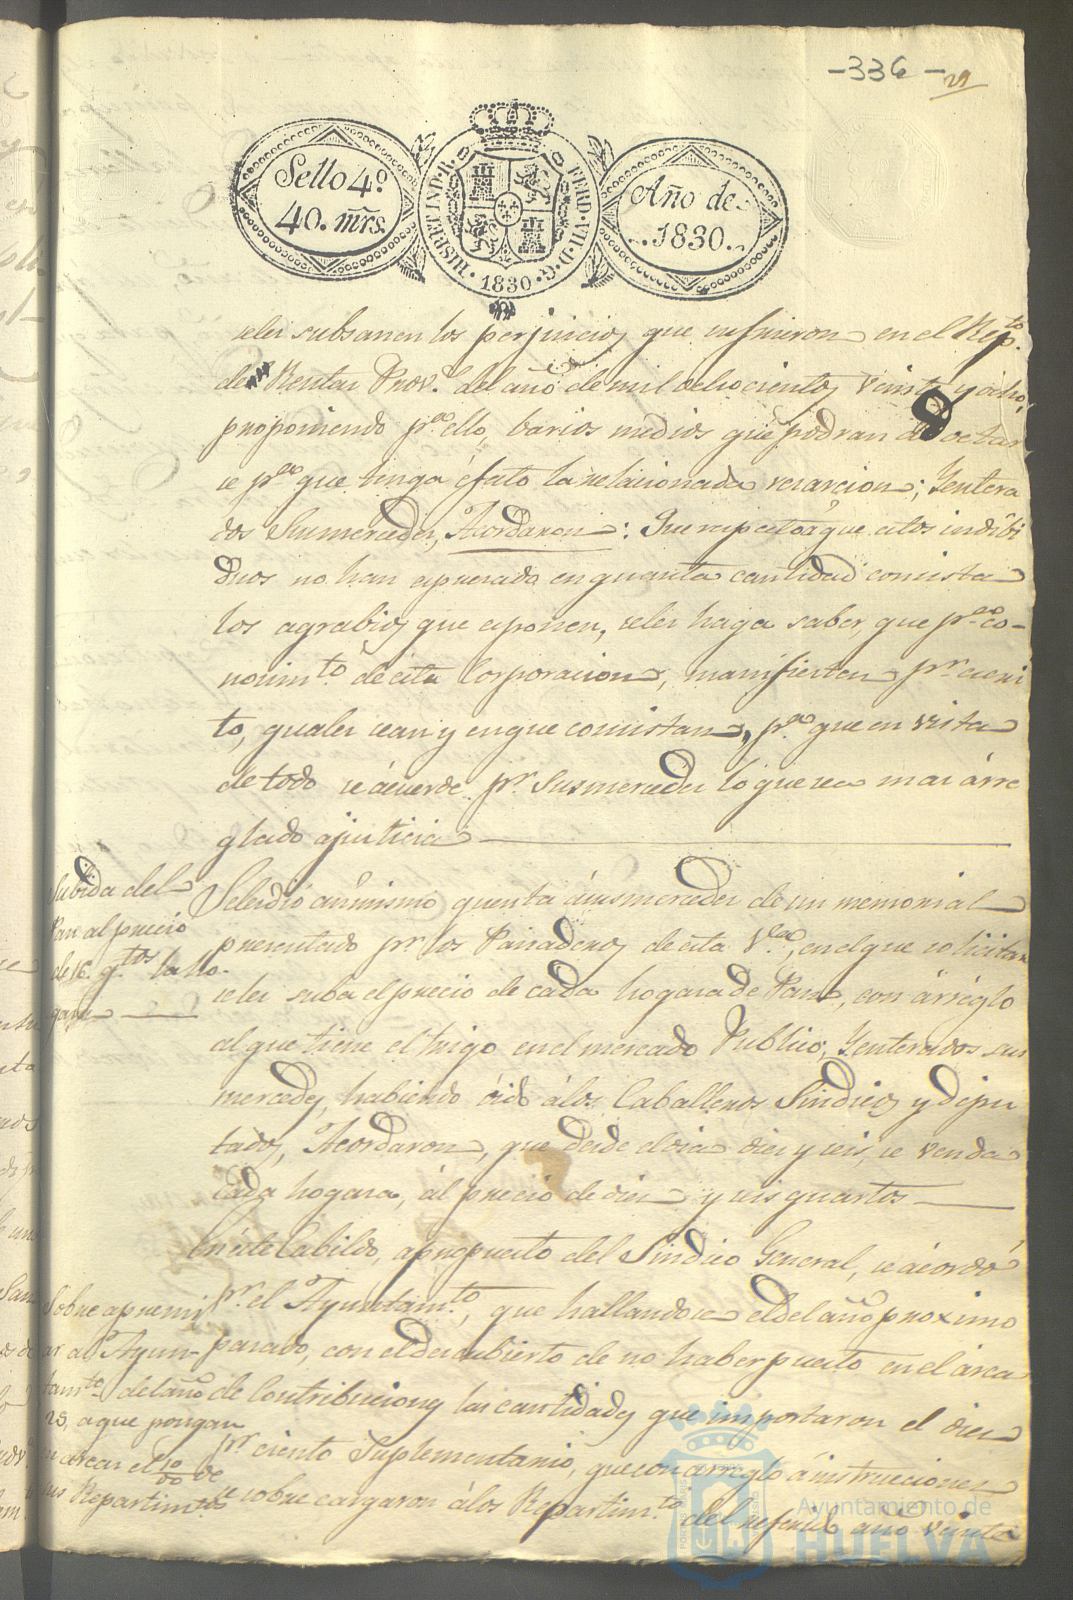 -336-
21
Sello 4º
40. mrs.
HISP. ET IND. R.
FERD. VII. D. G.
1830
Año de
1830.
seles subsanen los perjuicios que sufrieron en el Rep.to
de Rentas Prov.s del año de mil ochocientos veinte y ocho,
proponiendo p.a ello, barios medios que podran adoctar
se p.a que tenga efecto la relacionada resarcion; Yentera
dos Susmercedes, Acordaron: Que respecto á que estos indibi
duos no han espresado en quanta cantidad consista
los agrabios que esponen, seles haga saber, que p.a co-
nosim.to de esta Corporacion, manifiesten p.r escri
to, quales sean y en que consistan, p.a que en vista
de todo se ácuerde p.r Susmercedes lo que sea mas árre
glado a justicia
Subida del
Pan al precio
de 16. q.tos la ho-
gasa
Seledió asimismo quenta ásusmercedes de un memorial
presentado p.r los Panaderos de esta V.a, en el que solicitan
seles suba el precio de cada hogasa de Pan, con árreglo
al que tiene el trigo en el mercado Publico; Yenterados sus
mercedes, habiendo óido álos Caballeros Sindicos y dipu
tados, Acordaron, que desde el dia dies y seis, se venda
Cada hogasa, ál precio de dies y seis quartos
En este Cabildo, a propuesto del Sindico General, se ácordó
p.r el Ayuntam.to, que hallandose el del año proximo
pasado, con el descubierto de no haber puesto en el árca
de Contribuciones las cantidades que importaron el dies
p.r ciento Suplementario, que con arreglo á instrucciones
se sobre cargaron álos Repartim.tos del referido año veinte
Sobre apremi
ar al Ayun-
tam.to del año
29, a que pongan
en arcas el 10
de
sus Repartim.tos
Ayuntamiento de
HUELVA